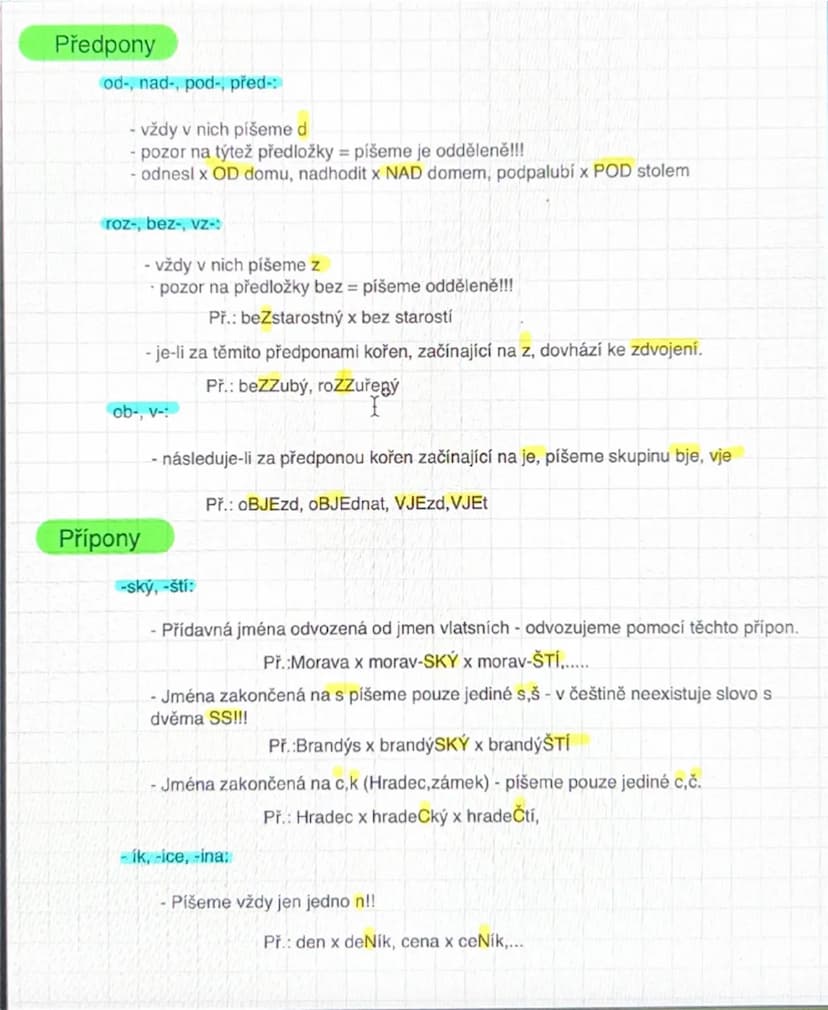 Předpony
od-, nad-, pod-, před-:
- vždy v nich píšeme d
- pozor na týtež předložky = píšeme je odděleně!!!
- odnesl x OD domu, nadhodit x NAD domem, podpalubí x POD stolem
roz-, bez-, vz-:
- vždy v nich píšeme z
- pozor na předložky bez = píšeme odděleně!!!
Př.: beZstarostný x bez starostí
- je-li za těmito předponami kořen, začínající na z, dovhází ke zdvojení.
Př.: beZZubý, roZZuřený
ob-, v-:
- následuje-li za předponou kořen začínající na je, píšeme skupinu bje, vje
Př.: oBJEzd, oBJEdnat, VJEzd,VJEt
Přípony
-ský, -ští:
- Přídavná jména odvozená od jmen vlatsních - odvozujeme pomocí těchto přípon.
Př.:Morava x morav-SKÝ x morav-ŠTÍ,.....
- Jména zakončená na s píšeme pouze jediné s,š - v češtině neexistuje slovo s
dvěma SS!!!
Př.:Brandýs x brandýSKÝ x brandýŠTÍ
- Jména zakončená na c,k (Hradec,zámek) - píšeme pouze jediné c,č.
Př.: Hradec x hradeCký x hradeČtí,
- ík, -ice, -ina:
- Píšeme vždy jen jedno n!!
Př.: den x deNík, cena x ceNík,...